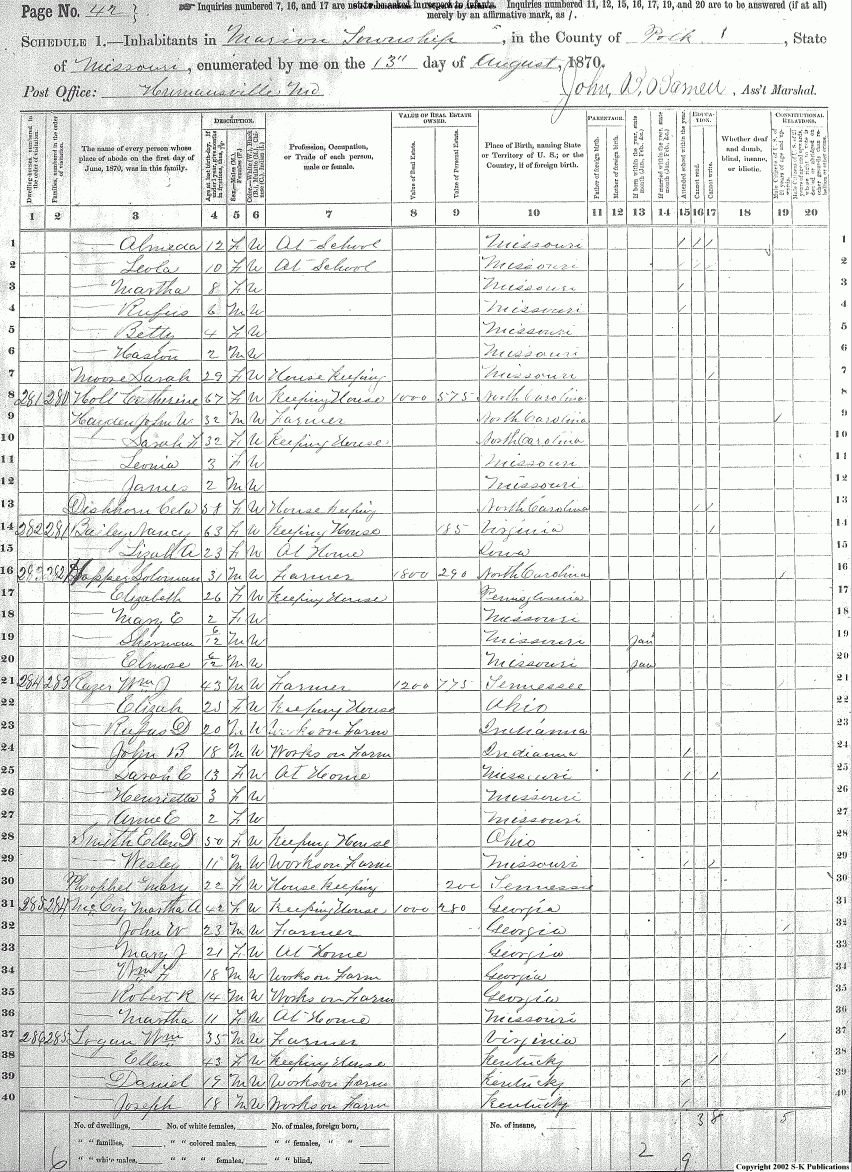 Page No. 42
Inquiries numbered 7, 16, and 17 are not to be asked in respect to infants. Inquiries numbered 11, 12, 15, 16, 17, 19, and 20 are to be answered (if at all) merely by an affirmative mark, as /.
SCHEDULE 1.—Inhabitants in Marion Township, in the County of Polk, State
of Missouri, enumerated by me on the 13" day of August, 1870.
Post Office: Humansville Mo
John , Ass't Marshal.
DESCRIPTION. VALUE OF REAL ESTATE OWNED. PARENTAGE. EDUCATION. CONSTITUTIONAL RELATIONS.
Dwelling-houses, numbered in the order of visitation. Families, numbered in the order of visitation. The name of every person whose place of abode on the first day of June, 1870, was in this family. Profession, Occupation, or Trade of each person, male or female. Value of Real Estate. Value of Personal Estate. Place of Birth, naming State or Territory of U. S.; or the Country, if of foreign birth. Father of foreign birth. Mother of foreign birth. Attended school within the year. Cannot read. Cannot write. Whether deaf and dumb, blind, insane, or idiotic.
1 2 3 4 5 6 7 8 9 10 11 12 13 14 15 16 17 18 19 20
1 — Almeda 12 F W At School Missouri / / / 1
2 — Leola 10 F W At School Missouri / / / 2
3 — Martha 8 F W Missouri / 3
4 — Rufus 6 M W Missouri / 4
5 — Betty 4 F W Missouri 5
6 — Haston 2 M W Missouri 6
7 Moore Sarah 29 F W House Keeping Missouri / 7
8 281 280 Holt Catherine 67 F W Keeping House 1000 575 North Carolina 8
9 Hayden John W 32 M W Farmer North Carolina / 9
10 — Sarah F 32 F W Keeping House North Carolina 10
11 — Leonia 3 F W Missouri 11
12 — James 2 M W Missouri 12
13 Dishhorn Cela 58 F W House Keeping North Carolina / / 13
14 282 281 Bailey Nancy 63 F W Keeping House 185 Virginia / 14
15 — Lizah A 23 F W At Home Iowa 15
16 283 282 Hopper Soloman 31 M W Farmer 1800 290 North Carolina / 16
17 — Elizabeth 26 F W Keeping House Pennsylvania 17
18 — Mary E 2 F W Missouri 18
19 — Sherman 6/12 M W Missouri Jan 19
20 — Elmore 6/12 M W Missouri Jan 20
21 284 283 Razer Wm J 43 M W Farmer 1200 775 Tennessee 21
22 — Elizah 25 F W Keeping House Ohio 22
23 — Rufus D 20 M W Works on Farm Indianna 23
24 — John B 18 M W Works on Farm Indianna / 24
25 — Sarah E 13 F W At Home Missouri / / 25
26 — Henrietta 3 F W Missouri 26
27 — Annie E 2 F W Missouri 27
28 Smith Ellen D 50 F W Keeping House Ohio 28
29 — Wesley 11 M W Works on Farm Missouri / / 29
30 Phrophet Mary 22 F W House Keeping 200 Tennessee 30
31 285 284 McCoy Martha A 42 F W Keeping House 1000 280 Georgia 31
32 — John W 23 M W Farmer Georgia / 32
33 — Mary J 21 F W At Home Georgia 33
34 — Wm F 18 M W Works on Farm Georgia 34
35 — Robert R 14 M W Works on Farm Georgia 35
36 — Martha 11 F W At Home Missouri 36
37 286 285 Logan Wm 35 M W Farmer Virginia / 37
38 — Ellen 43 F W Keeping House Kentucky / 38
39 — Daniel 19 M W Works on Farm Kentucky / 39
40 — Joseph 18 M W Works on Farm Kentucky / 40
3 8 5
No. of dwellings, No. of white females, No. of males, foreign born, No. of insane,
" " families, " " colored males, " " females, " " 2
6 " " white males, " " " females, " " blind, 9
Copyright 2002 S-K Publications